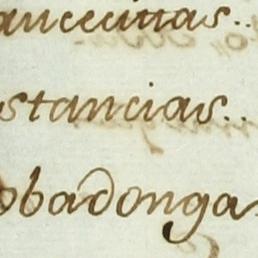 ancecitas..
stancias..
obadonga